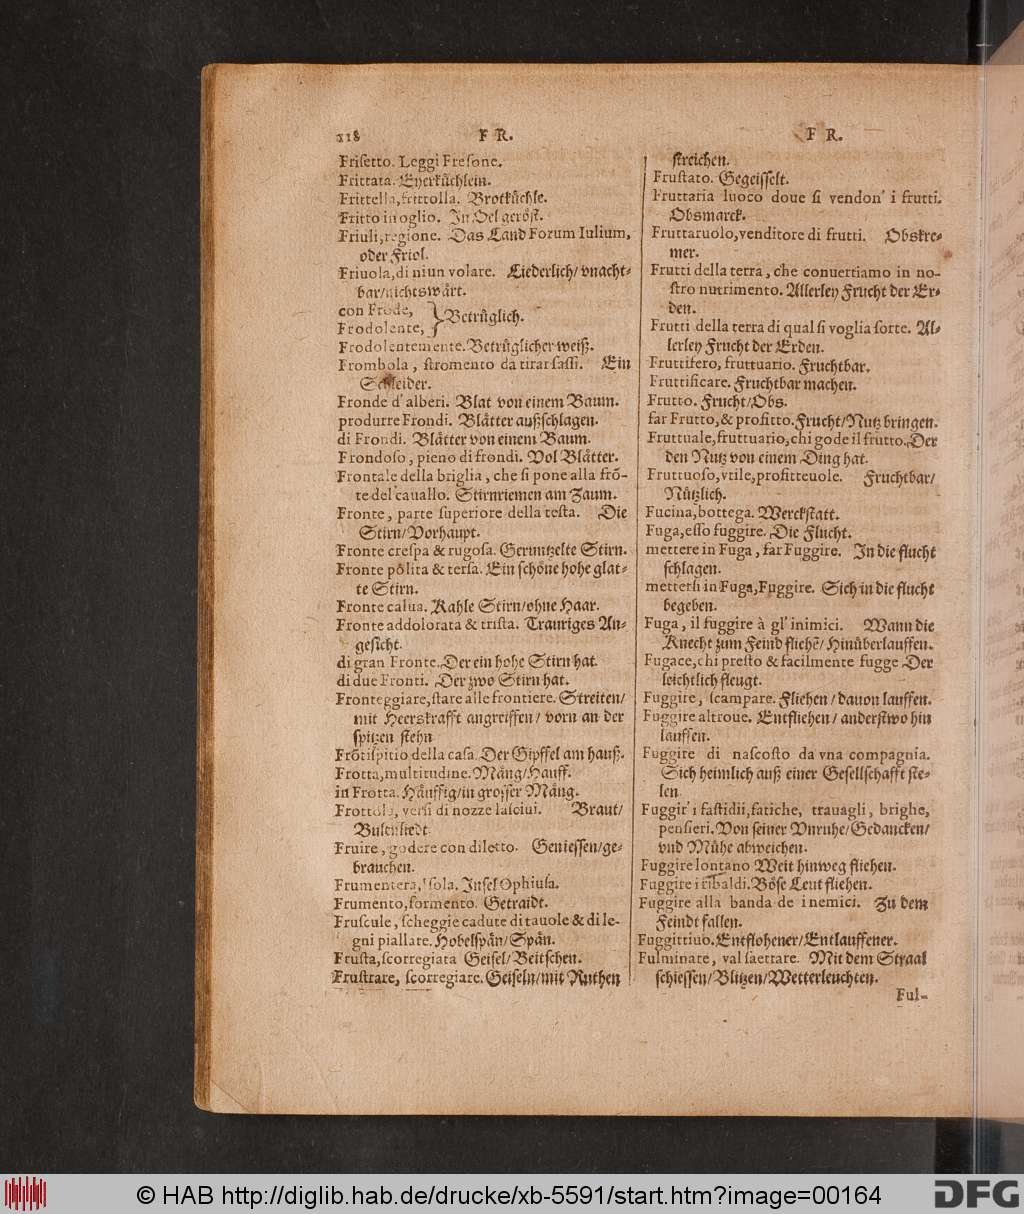 218 F R. F R.
Friſetto. Leggi Freſone.
Frittata. Eyerkuͤchlein.
Frittella, frittolla. Brotkuͤchle.
Fritto in oglio. In Oel geroͤſt.
Friuli, regione. Das Land Forum Iulium,
oder Friol.
Friuola, di niun volare. Liederlich/ vnacht-
bar/nichtswaͤrt.
con Frode,
Frodolente, } Betruͤglich.
Frodolentemente. Betruͤglicher weiß.
Frombola, ſtromento da tirar ſaſſi. Ein
Schleider.
Fronde d'alberi. Blat von einem Baum.
produrre Frondi. Blaͤtter außſchlagen.
di Frondi. Blaͤtter von einem Baum.
Frondoſo, pieno di frondi. Vol Blaͤtter.
Frontale della briglia, che ſi pone alla frō-
te del cauallo. Stirnriemen am Zaum.
Fronte, parte ſuperiore della teſta. Die
Stirn/Vorhaupt.
Fronte creſpa & rugoſa. Geruntzelte Stirn.
Fronte polita & terſa. Ein ſchoͤne hohe glat-
te Stirn.
Fronte calua. Kahle Stirn/ohne Haar.
Fronte addolorata & triſta. Trauriges An-
geſicht.
di gran Fronte. Der ein hohe Stirn hat.
di due Fronti. Der zwo Stirn hat.
Fronteggiare, ſtare alle frontiere. Streiten/
mit Heerskrafft angreiffen/ vorn an der
ſpitzen ſtehn
Frōtiſpitio della caſa. Der Gipffel am hauß.
Frotta, multitudine. Maͤng/Hauff.
in Frotta. Haͤuffig/in groſſer Maͤng.
Frottola, verſi di nozze laſciui. Braut/
Bullliedt
Fruire, godere con diletto. Genieſſen/ge-
brauchen.
Frumentera, Iſola. Inſel Ophiuſa.
Frumento, formento. Getraidt.
Fruſcule, ſcheggie cadute di tauole & di le-
gni piallate. Hobelſpaͤn/Spaͤn.
Fruſta, ſcorregiata Geiſel/Beitſchen.
Fruſtrare, ſcorregiare. Geiſeln/mit Ruthen
ſtreichen.
Fruſtato. Gegeiſſelt.
Fruttaria luoco doue ſi vendon' i frutti.
Obsmarck.
Fruttaruolo, venditore di frutti. Obskre-
mer.
Frutti della terra, che conuertiamo in no-
ſtro nutrimento. Allerley Frucht der Er-
den.
Frutti della terra di qual ſi voglia ſorte. Al-
lerley Frucht der Erden.
Fruttifero, fruttuario. Fruchtbar.
Fruttificare. Fruchtbar machen.
Frutto. Frucht/Obs.
far Frutto, & profitto. Frucht/Nutz bringen.
Fruttuale, fruttuario, chi gode il frutto. Der
den Nutz von einem Ding hat.
Fruttuoſo, vtile, profitteuole. Fruchtbar/
Nuͤtzlich.
Fucina, bottega. Werckſtatt.
Fuga, eſſo fuggire. Die Flucht.
mettere in Fuga, far Fuggire. In die flucht
ſchlagen.
metterſi in Fuga, Fuggire. Sich in die flucht
begeben.
Fuga, il fuggire à gl'inimici. Wann die
Knecht zum Feind fliehē/ Hinuͤberlauffen.
Fugace, chi preſto & facilmente fugge Der
leichtlich fleugt.
Fuggire, ſcampare. Fliehen/ dauon lauffen.
Fuggire altroue. Entfliehen/ anderſtwo hin
lauffen.
Fuggire di naſcoſto da vna compagnia.
Sich heimlich auß einer Geſellſchafft ſte-
len
Fuggir' i faſtidii, fatiche, trauagli, brighe,
penſieri. Von ſeiner Vnruhe/Gedancken/
vnd Muͤhe abweichen.
Fuggire lontano Weit hinweg fliehen.
Fuggire i ribaldi. Boͤſe Leut fliehen.
Fuggire alla banda de inemici. Zu dem
Feindt fallen.
Fuggittiuo. Entflohener/Entlauffener.
Fulminate, val ſaettare. Mit dem Straal
ſchieſſen/Blitzen/Wetterleuchten.
Ful-
© HAB http://diglib.hab.de/drucke/xb-5591/start.htm?image=00164
DFG